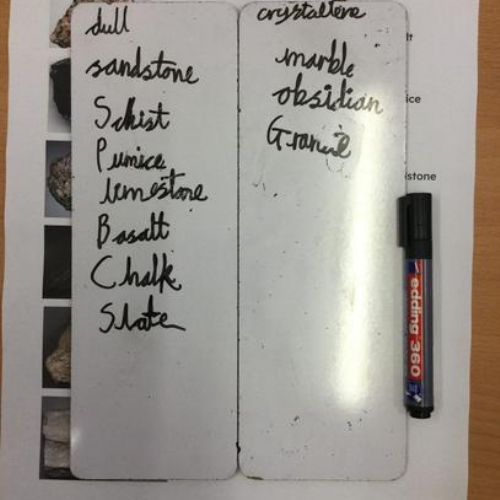 dull
sandstone
Schist
Pumice
limestone
Basalt
Chalk
Slate
crystaltene
marble
obsidian
Granie
lt
ice
stone
edding 360